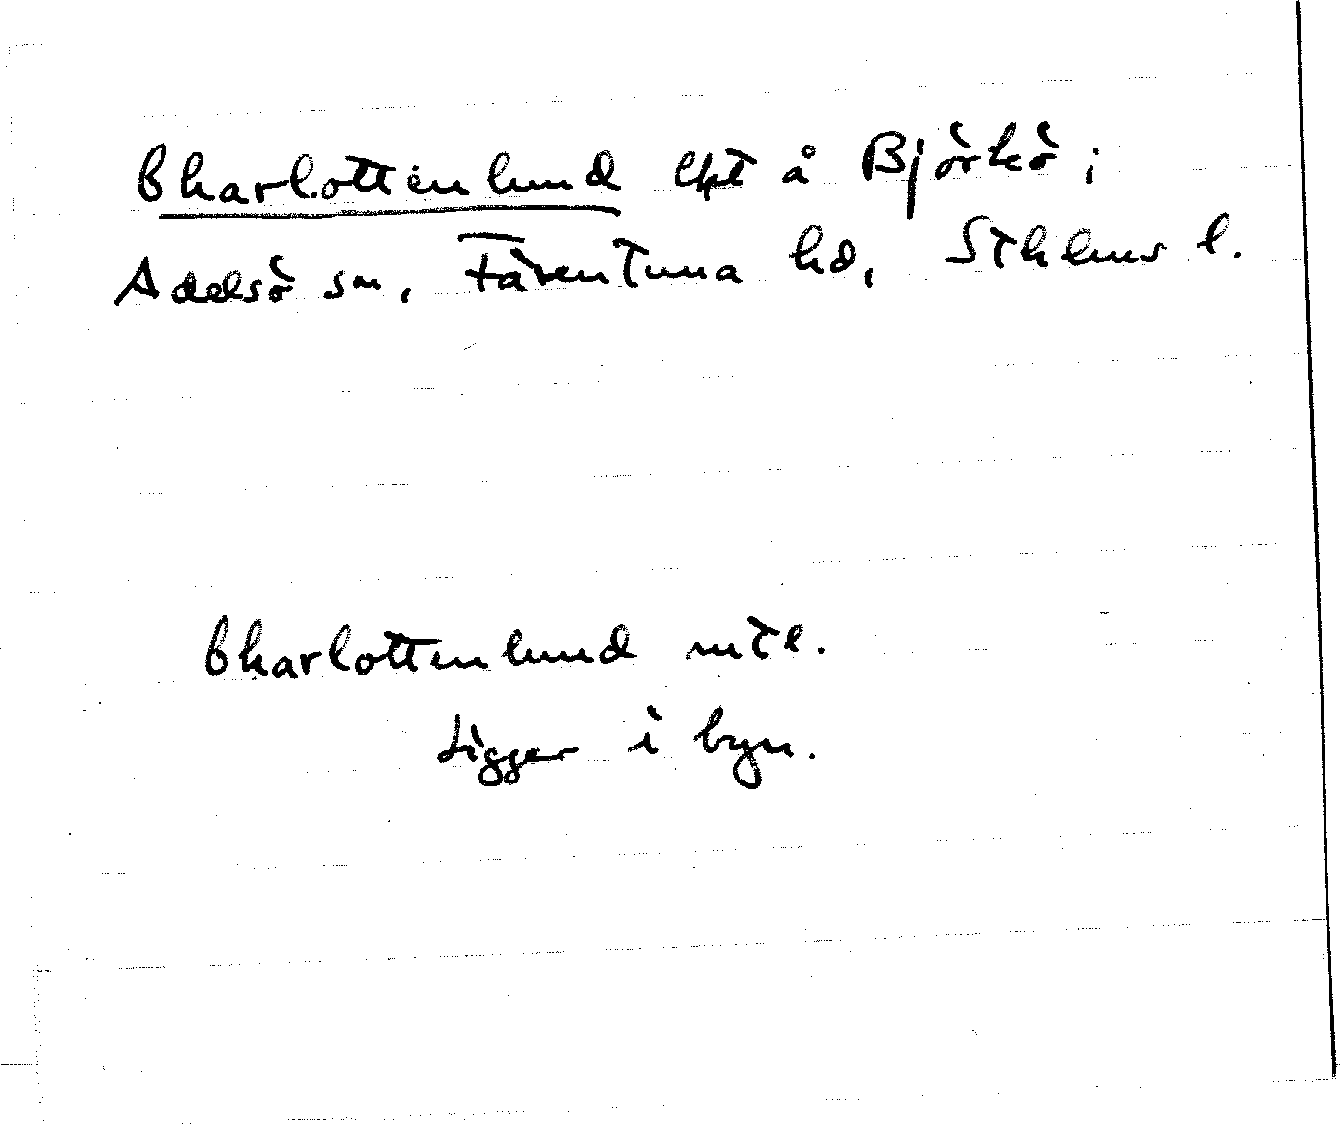 Charlottenlund lht å Björkö i
Adelsö sn, Färentuna hd, Sthlms l.
Charlottenlund mtl.
Ligger i byn.